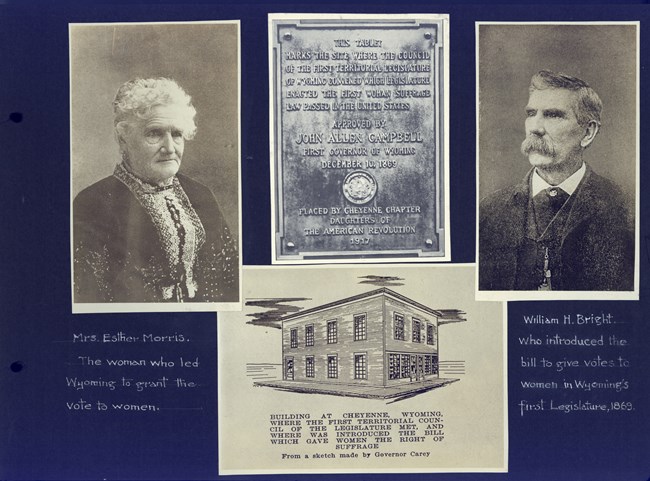 THIS TABLET
MARKS THE SITE WHERE THE COUNCIL
OF THE FIRST TERRITORIAL LEGISLATURE
OF WYOMING CONVENED WHICH LEGISLATURE
ENACTED THE FIRST WOMAN SUFFRAGE
LAW PASSED IN THE UNITED STATES
APPROVED BY
JOHN ALLEN CAMPBELL
FIRST GOVERNOR OF WYOMING
DECEMBER 10, 1869
PLACED BY CHEYENNE CHAPTER
DAUGHTERS OF
THE AMERICAN REVOLUTION
1917
Mrs. Esther Morris.
The woman who led
Wyoming to grant the
vote to women.
William H. Bright.
Who introduced the
bill to give votes to
women in Wyoming's
first Legislature, 1869.
BUILDING AT CHEYENNE, WYOMING,
WHERE THE FIRST TERRITORIAL COUN-
CIL OF THE LEGISLATURE MET, AND
WHERE WAS INTRODUCED THE BILL
WHICH GAVE WOMEN THE RIGHT OF
SUFFRAGE
From a sketch made by Governor Carey